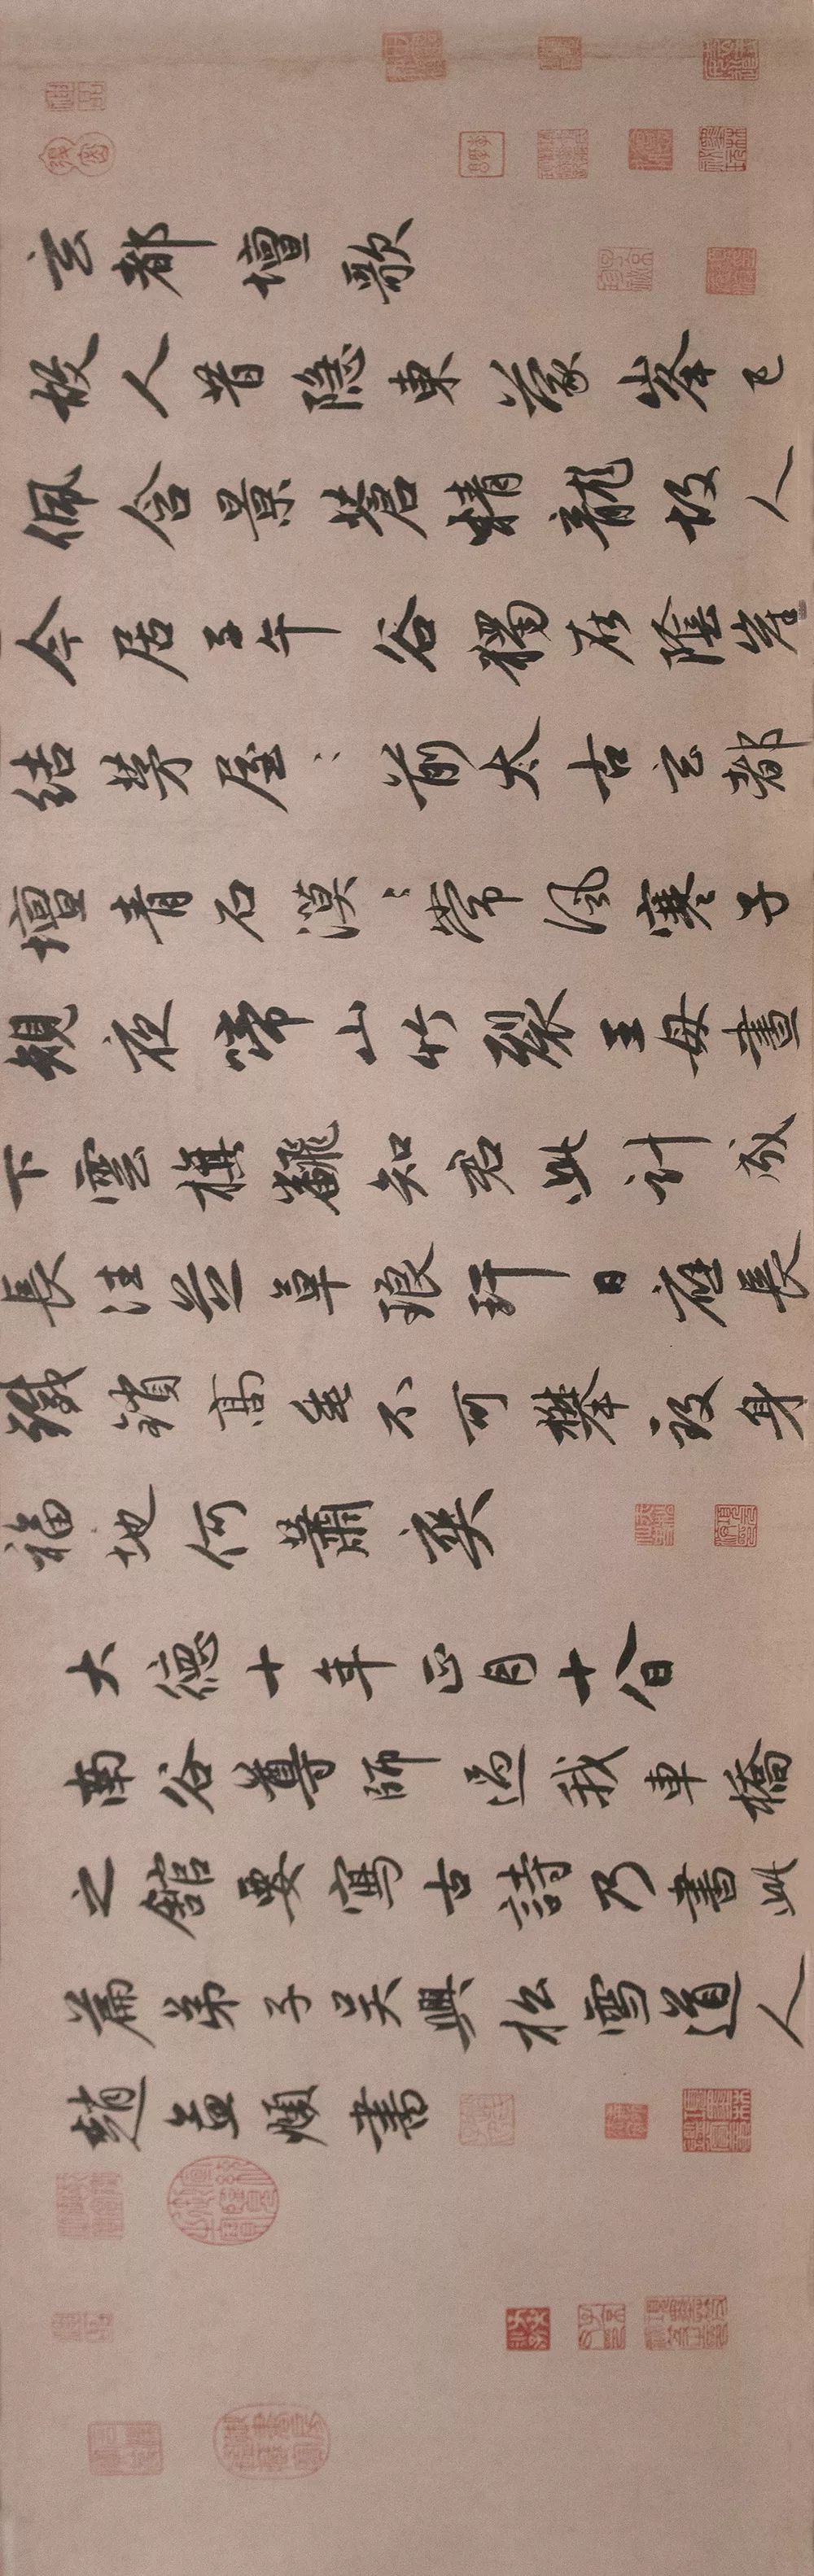 玄都壇歌
故人昔隱東蒙峯已
佩含景蒼精龍故人
今居子午谷獨在陰崖
結茅屋〻前太古玄都
壇青石漠〻常風寒子
規夜啼山竹裂王母晝
下雲旗飜知君此計成
長往芝草琅玕日應長
鐵鎖高垂不可攀致身
福地何蕭爽
大德十年正月十八日
南谷尊師過我車橋
之館要寫古詩乃書此
篇弟子吳興松雪道人
趙孟頫書